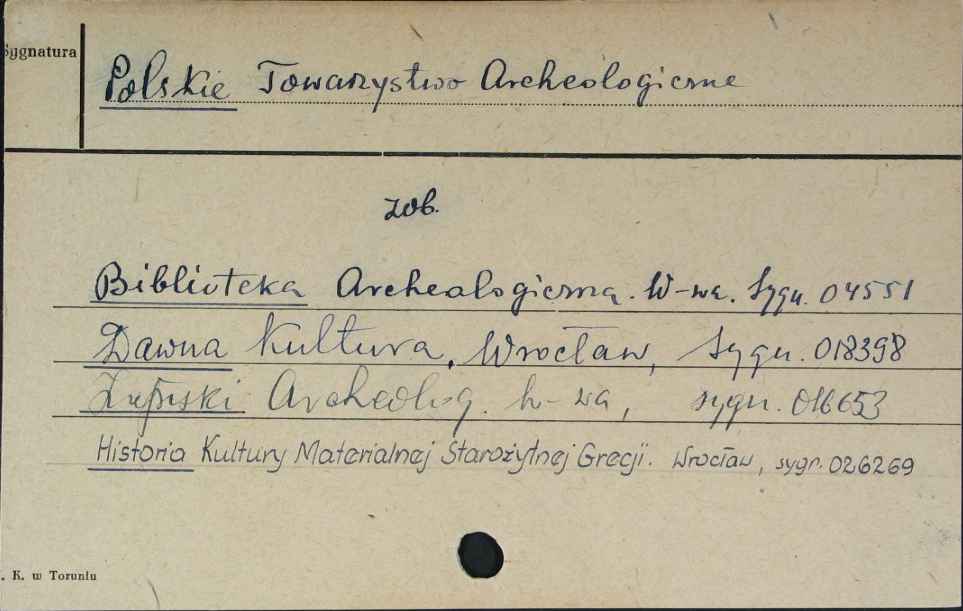 Sygnatura
Polskie Towarzystwo Archeologiczne
zob.
Biblioteka Archeologiczna. W-wa. Sygn. 04551
Dawna Kultura, Wrocław, Sygn. 018398
Archeolog. W-wa, sygn. 016653
Historia Kultury Materialnej Starożytnej Grecji. Wrocław, sygn. 026269
. K. w Toruniu